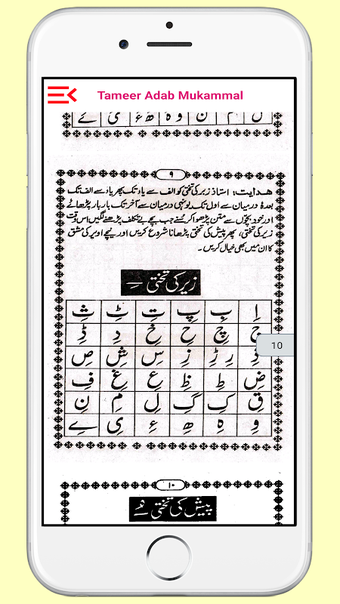 Tameer Adab Mukammal
ل م ن و ہ ھ ء ی ے
۹
ہدایت: استاذ زیر کی تختی کو الف سے یا تک پھر یا سے الف تک
بعدہٗ درمیان سے اول تک یونہی درمیان سے آخر تک بار بار پڑھائے
اور خود بچوں سے پڑھوا کر سنے جب بچے بے تکلف پڑھنے لگیں اس وقت
زیر کی تختی، پھر پیش کی تختی پڑھانا شروع کریں اور نیچے اوپر کی مشق
کا ان میں بھی خیال کریں۔
زیر کی تختی ــِـ
اِ بِ پِ تِ ٹِ ثِ
جِ چِ حِ خِ دِ ڈِ
ذِ رِ ڑِ زِ سِ شِ صِ
10
ضِ طِ ظِ عِ غِ فِ
قِ کِ گِ لِ مِ نِ
وِ ہِ ھِ ءِ یِ ےِ
۱۰
پیش کی تختی ــُـ